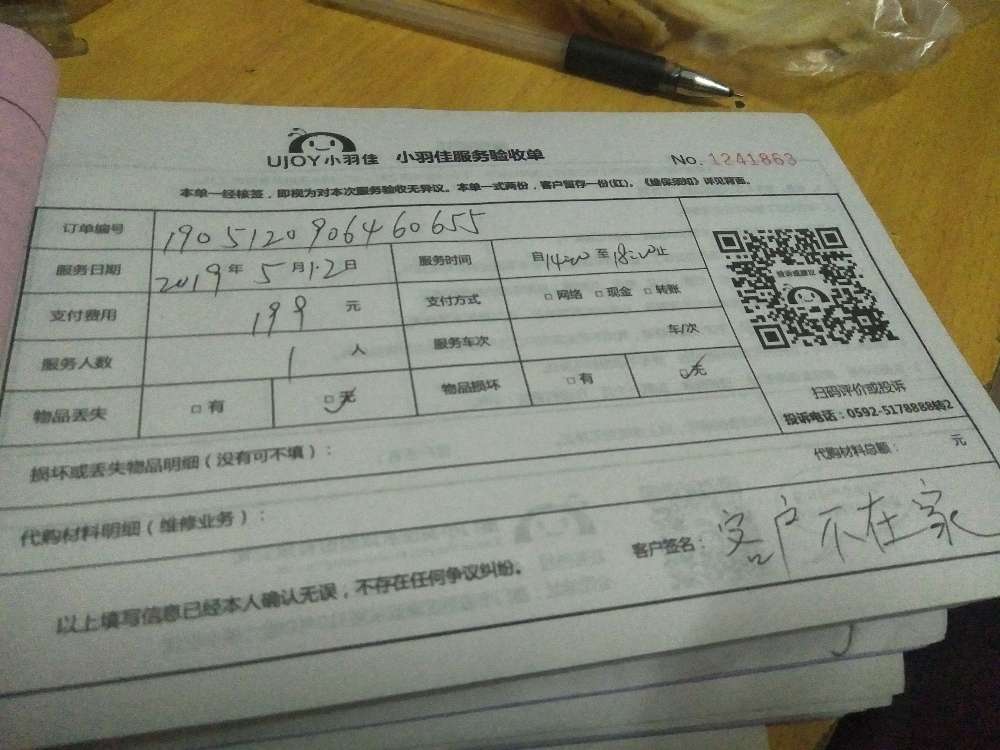 UJOY小羽佳 小羽佳服务验收单 No. 1241863
本单一经核签，即视为对本次服务验收无异议。本单一式两份，客户留存一份(红)。《维保须知》详见背面。
订单编号 1905120906460655
服务日期 2019年5月12日 服务时间 自14:00至18:00止
支付费用 199 元 支付方式 □网络 □现金 □转账
服务人数 1 人 服务车次 车/次
物品丢失 □有 □无 物品损坏 □有 □无
投诉或建议
扫码评价或投诉
投诉电话：0592-5178888转2
损坏或丢失物品明细（没有可不填）：
代购材料明细（维修业务）： 代购材料总额： 元
以上填写信息已经本人确认无误，不存在任何争议纠纷。 客户签名：客户不在家